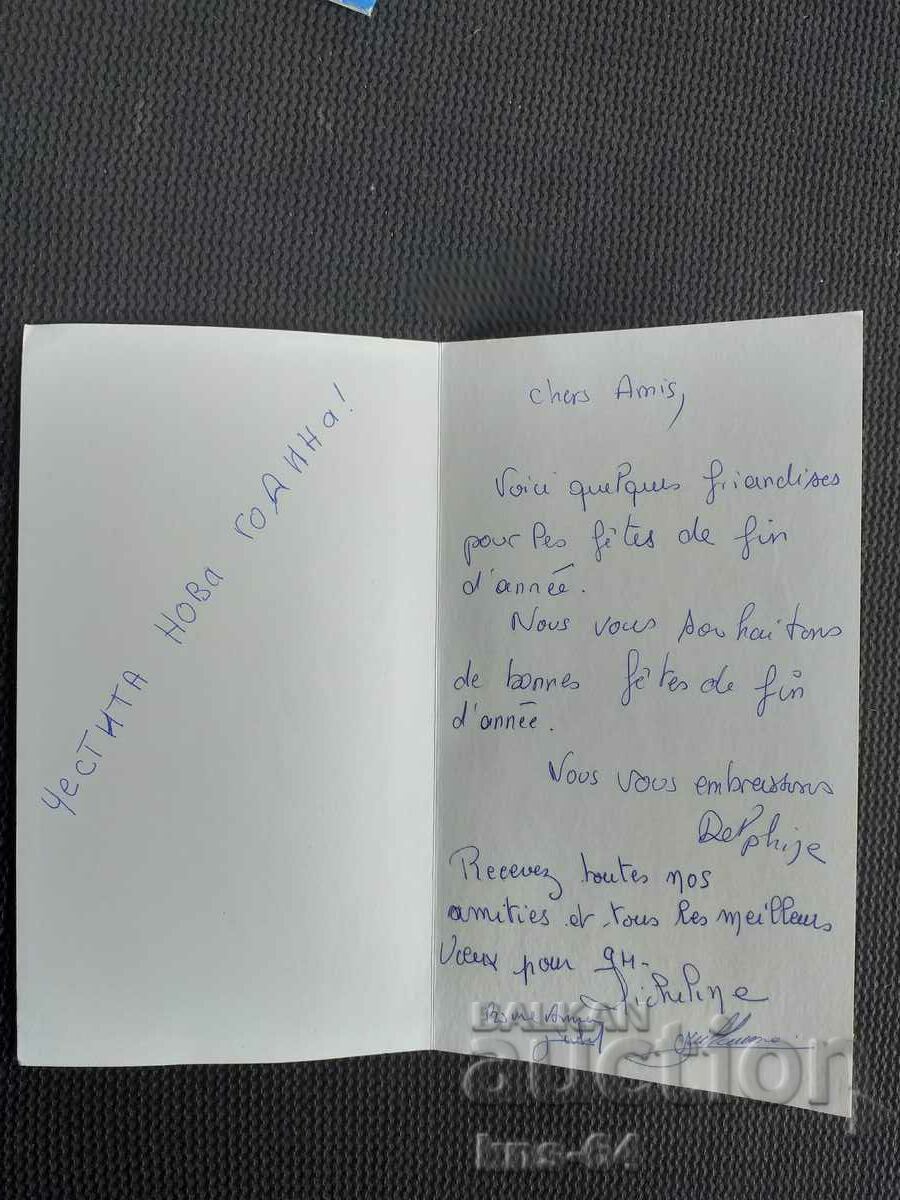 Честита Нова година!
Chers Amis,
Voici quelques friandises
pour les fêtes de fin
d'année.
Nous vous souhaitons
de bonnes fêtes de fin
d'année.
Nous vous embrassons
Delphine
Recevez toutes nos
amitiés et tous les meilleurs
Vœux pour 94-
Micheline
Bonne Année
BALKAN
auction
kns-64